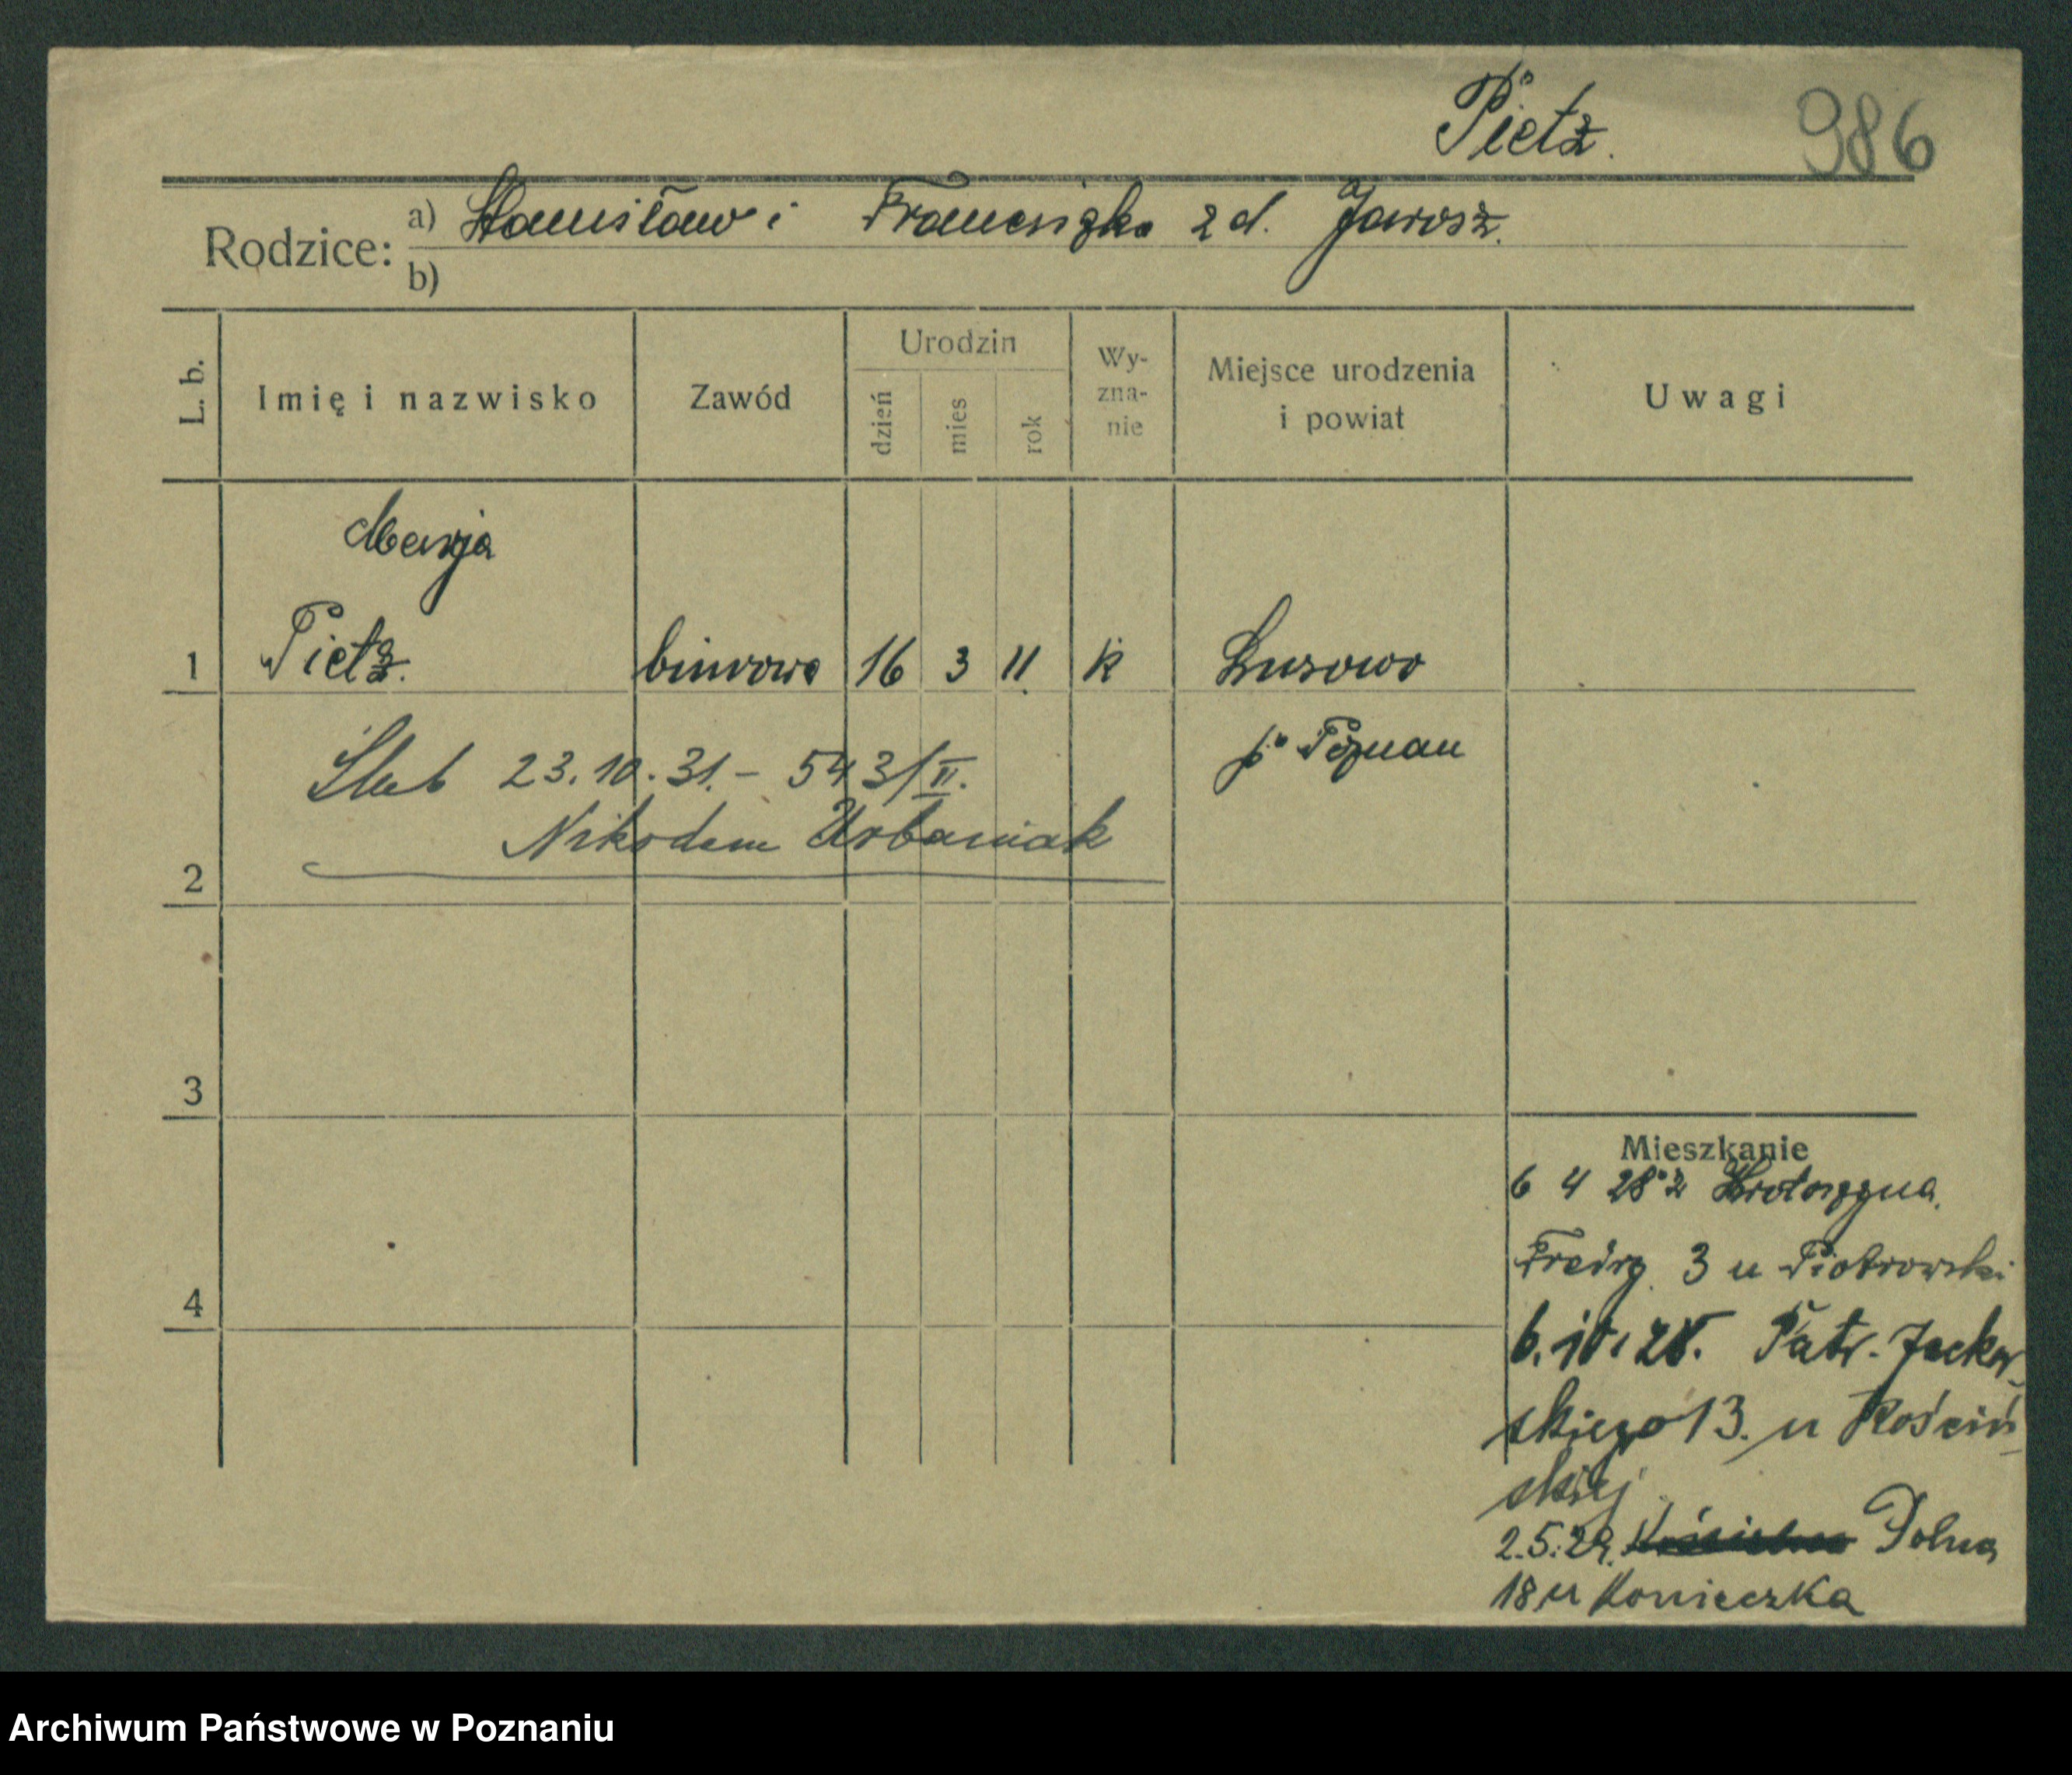 Pietz.
986
Rodzice:
a) Stanisław i Franciszka z d. Jarosz.
b)
L. b.
Imię i nazwisko
Zawód
Urodzin
dzień
mies
rok
Wy-
zna-
nie
Miejsce urodzenia
i powiat
Uwagi
Marja
1 Pietz. biurowa 16 3 11 k Lusowo
p. Poznan
Ślub 23.10.31. - 543/II.
Nikodem Urbaniak
2
3
4
Mieszkanie
6 4 28 z Krotoszyna.
Fredry 3 u Piotrowski
6.10.28. Patr. Jackow
skiego 13. u Kościń
skiej
2.5.29. Kościelna Polna
18 u Konieczka
Archiwum Państwowe w Poznaniu